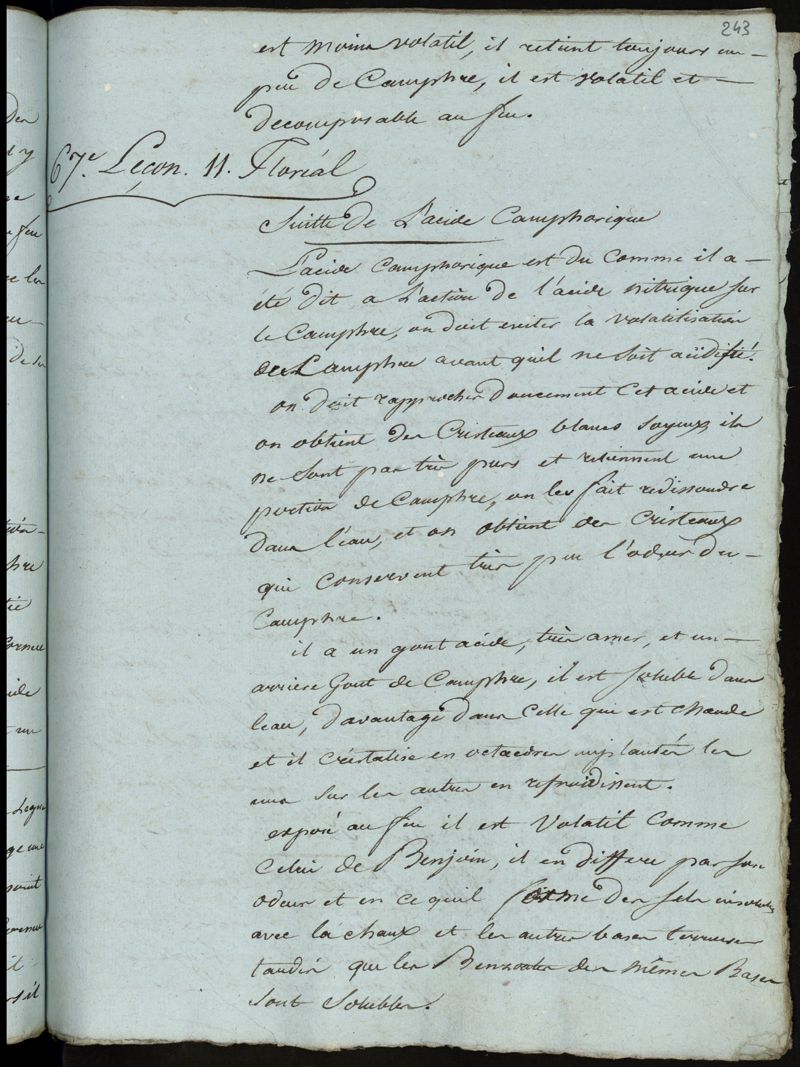 243
est moins volatil, il retient toujours un —
peu de Camphre, il est volatil et —
decomposable au feu.
67e. Leçon. 11. Floréal
Suitte de L'acide Camphorique
L'acide Camphorique est du comme il a —
été dit a L'action de l'acide nitrique sur
le Camphre, on doit eviter la volatilisation
de Camphre avant quil ne soit acidifié.
on doit rapprocher doucement Cet acide et
on obtient des Cristeaux blancs soyeux, ils
ne sont pas très purs et retiennent une
portion de Camphre, on les fait redissoudre
dans l'eau, et on obtient des Cristeaux
qui conservent très peu l'odeur du —
Camphre.
il a un gout acide, très amer, et un —
arriere Gout de Camphre, il est soluble dans
leau, davantage dans Celle qui est chaude
et il cristalise en octaedres implantés les
uns sur les autres en refroidissent.
exposé au feu il est Volatil Comme
Celui de Benjoin, il en differe par son
odeur et en ce quil forme des sels insolubles
avec la chaux et les autres bases terreuses
tandis que les Benzoates des mêmes Bases
sont Solubles.